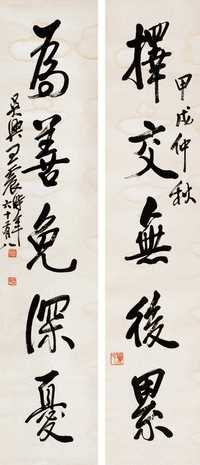 甲戌仲秋
擇交無後累
為善免深憂
吳興王震時年
六十有八